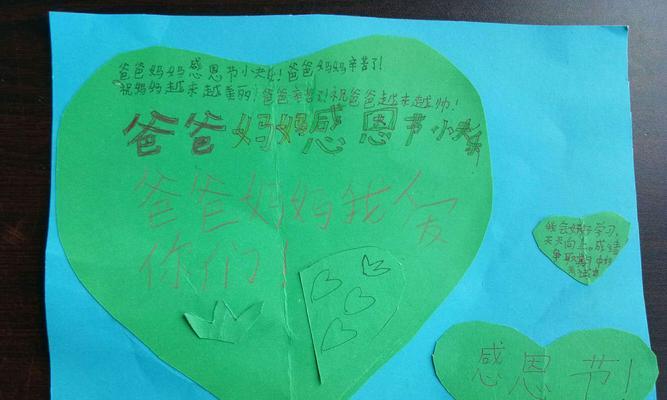 爸爸妈妈感恩节小快乐!爸爸妈妈辛苦了!
祝妈妈越来越美丽,爸爸辛苦了!祝爸爸越来越帅!
爸爸妈妈感恩节小快乐
爸爸妈妈我人爱
你们!
我会好好学习,
天天向上。成绩
争取期中
考试
感恩节!